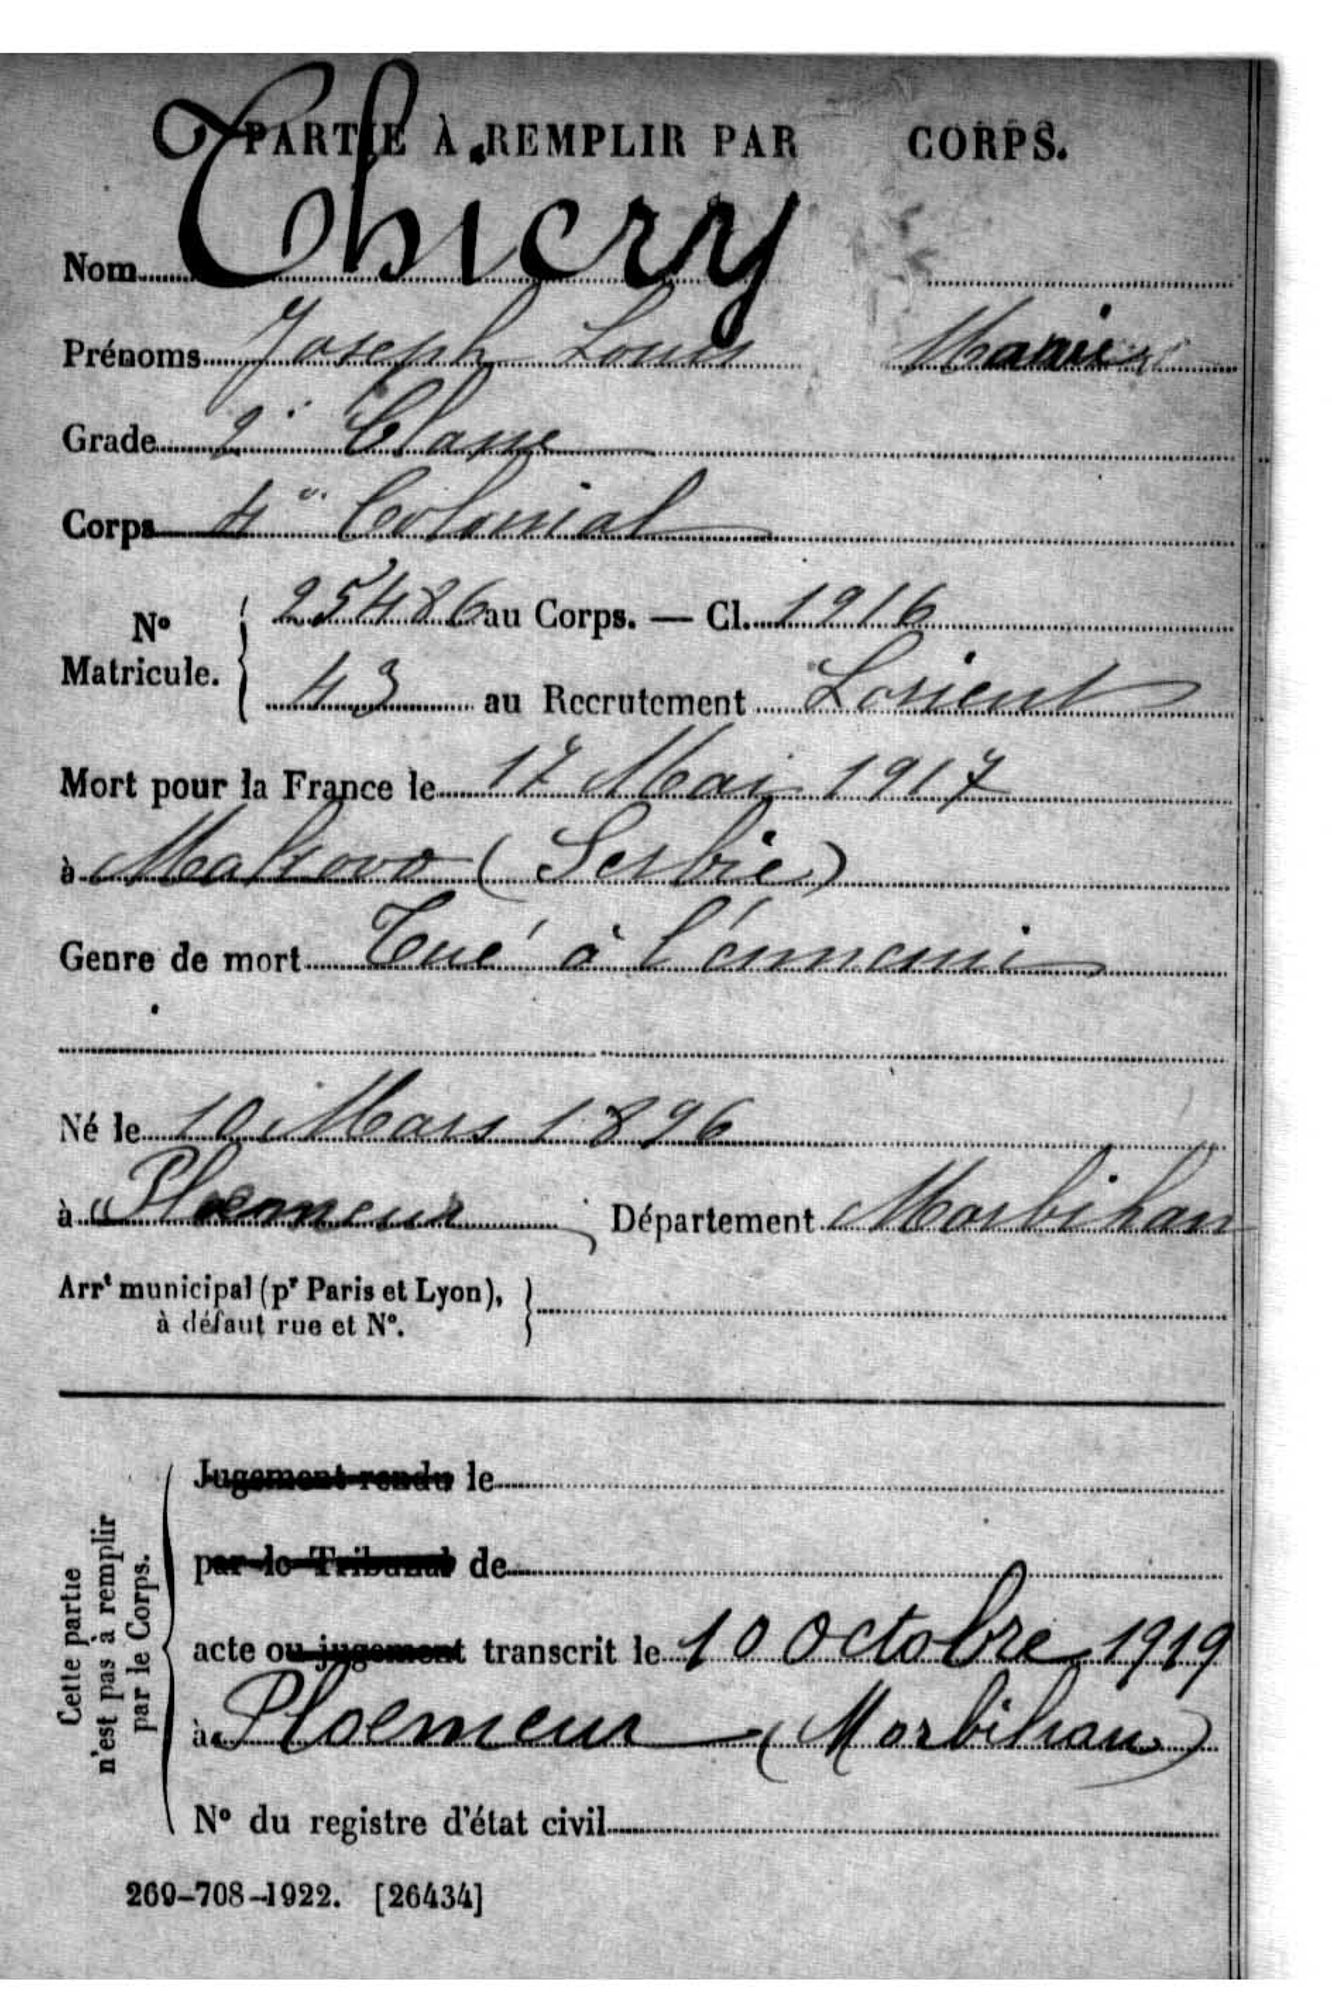 PARTIE À REMPLIR PAR CORPS.
Nom Thierry
Prénoms Joseph Louis Marie
Grade 2e Classe
Corps 4e Colonial
No Matricule. { 25486 au Corps. — Cl. 1916
43 au Recrutement Lorient
Mort pour la France le 17 Mai 1917
à Makovo (Serbie)
Genre de mort Tué à l'énnemi
Né le 10 Mars 1896
à Ploemeur Département Morbihan
Arrt municipal (pr Paris et Lyon), }
à défaut rue et No.
Cette partie
n'est pas à remplir
par le Corps.
Jugement rendu le
par le Tribunal de
acte ou jugement transcrit le 10 octobre 1919
à Ploemeur (Morbihan)
No du registre d'état civil
269-708-1922. [26434]